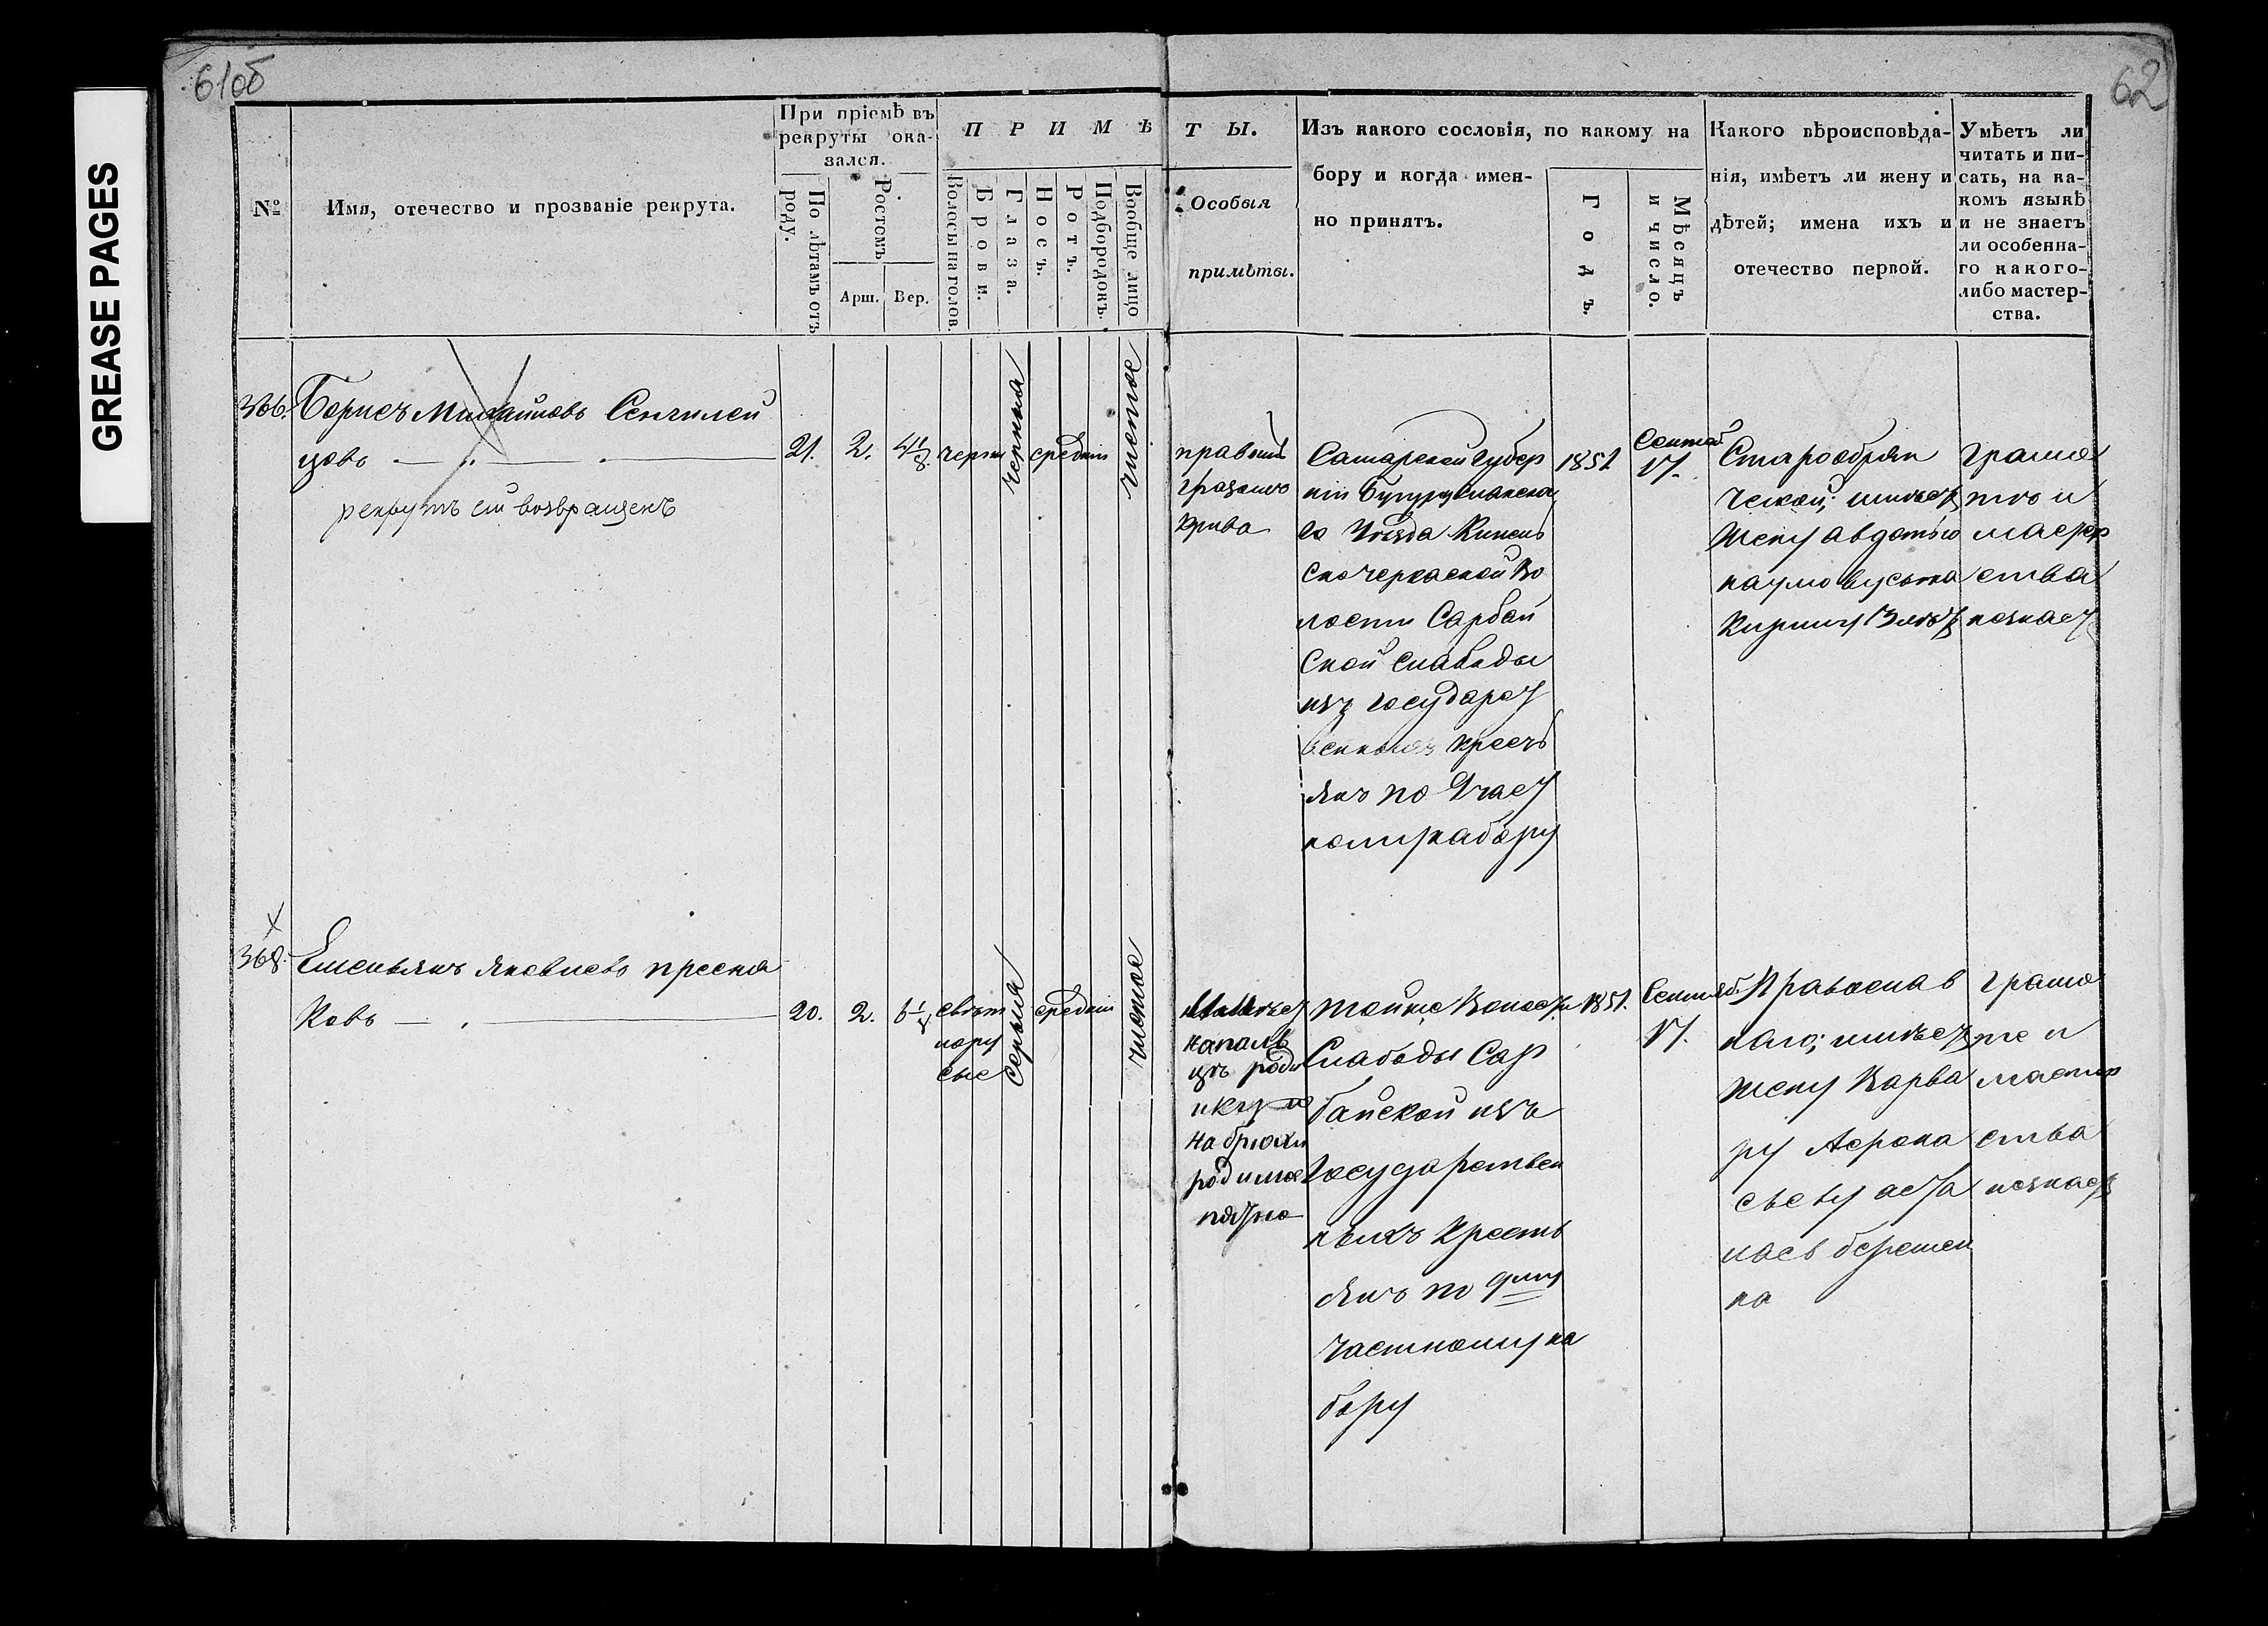 GREASE PAGES
61об
62
№
Имя, отечество и прозваніе рекрута.
При пріемѣ въ
рекруты ока-
зался.
По лѣтамъ отъ
роду.
Ростомъ
Арш.
Вер.
П Р И М Ѣ Т Ы.
Волосы на голов.
Брови.
Глаза.
Носъ.
Ротъ.
Подбородокъ.
Вообще лицо
Особыя
примѣты.
Изъ какого сословія, по какому на
бору и когда имен-
но принятъ.
Годъ.
Мѣсяцъ
и число.
Какого вѣроисповѣда-
нія, имѣетъ ли жену и
дѣтей; имена ихъ и
отечество первой.
Умѣетъ ли
читать и пи-
сать, на ка-
комъ языкѣ
и не знаетъ
ли особенна-
го какого-
либо мастер-
ства.
366.
Борисъ Михайловъ Сенгилей
цовъ
рекрутъ сiй возвращенъ
21.
2.
4 1/8.
черны
черныя
средніи
чистое
правымъ
глазомъ
крива
Самарской Губер
ніи Бугурусланска
го Уѣзда Кинель
Скочеркаской Во
лости Сарбай
Ской Слабоды
изъ государст
венныхъ кресть
янъ по Участ
кому набору
1851
Сентяб
17.
Старообряд
ческой; имѣетъ
Жену Авдотью
Наумову сына
грамо
тѣ и
мастер
ства
незнает
368.
Емельянъ Яковлевъ пресня
Ковъ
20.
2.
свѣт
лору
сые
серыя
средніи
чистое
на паль
цѣ роди
на брюхи
родимое
пятно
тойже Волости
Слабоды Сар
байской изъ
Государствен
ныхъ Кресть
янъ по
частному на
бору
1851.
Сентяб.
17.
Православ
наго; имѣетъ
жену Варва
ру
сьеву оста
лась беремен
на
грамо
те и
мастер
ства
незнает